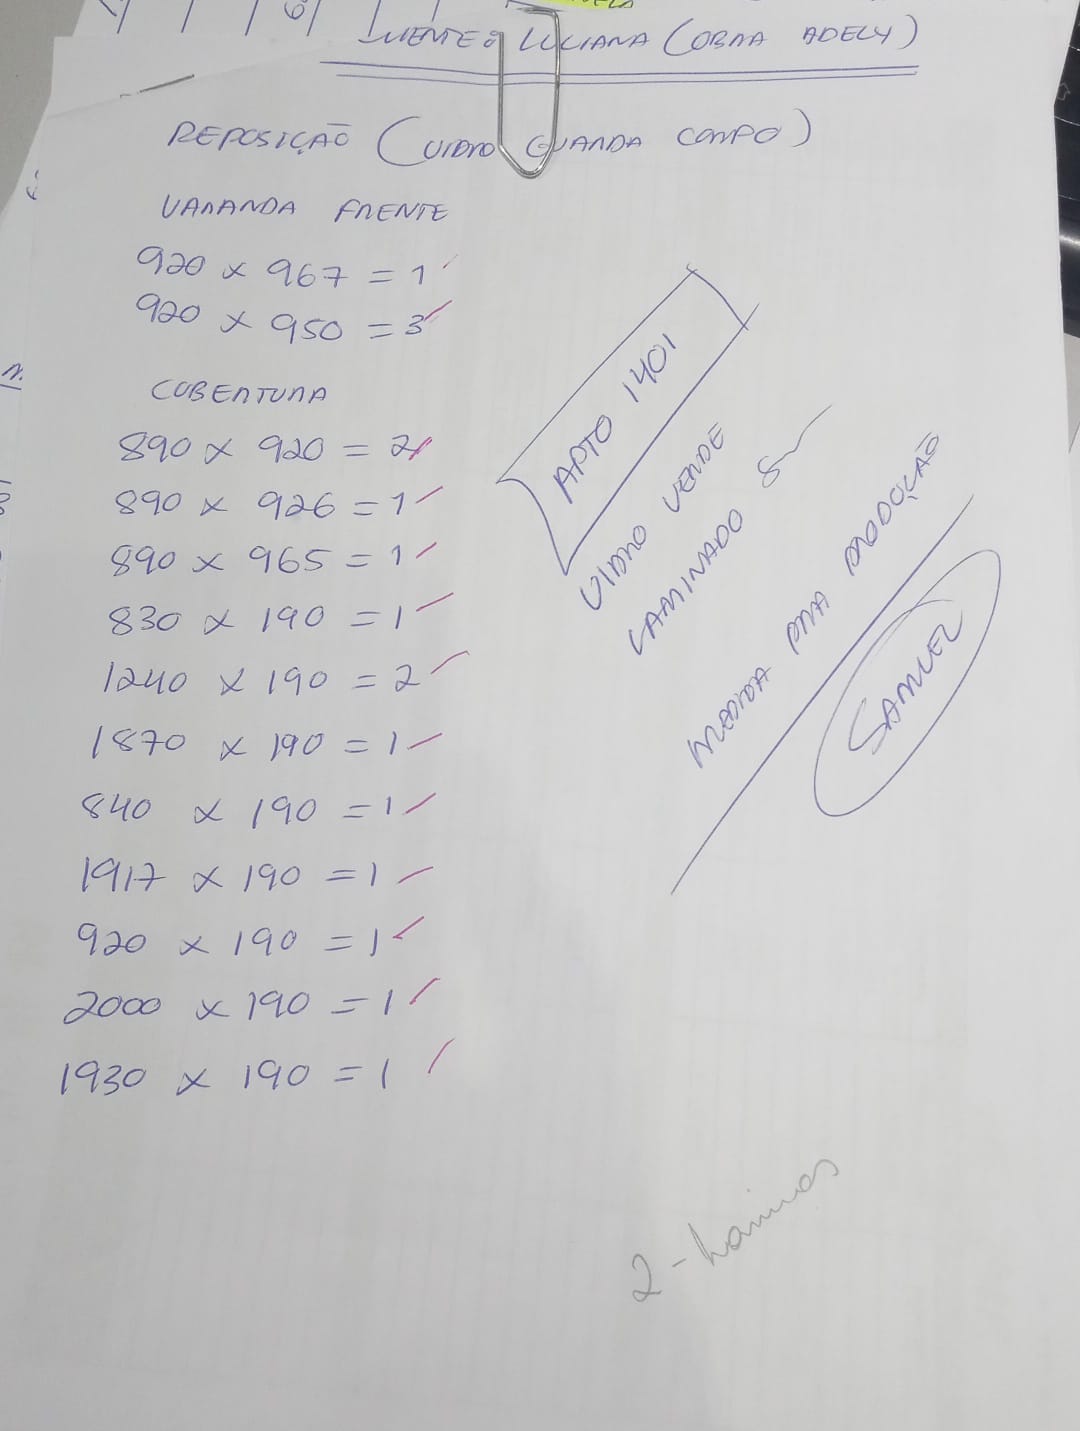 CLIENTE: LUCIANA (OBRA ADELY)
REPOSIÇÃO (VIDRO GUARDA CORPO)
VARANDA FRENTE
920 x 967 = 1
920 x 950 = 3
COBERTURA
890 x 920 = 2
890 x 926 = 1
890 x 965 = 1
830 x 190 = 1
1240 x 190 = 2
1870 x 190 = 1
840 x 190 = 1
1917 x 190 = 1
920 x 190 = 1
2000 x 190 = 1
1930 x 190 = 1
APTO 1401
VIDRO VERDE
LAMINADO 8
MEDIDA PRA PRODUÇÃO
SAMUEL
2 -